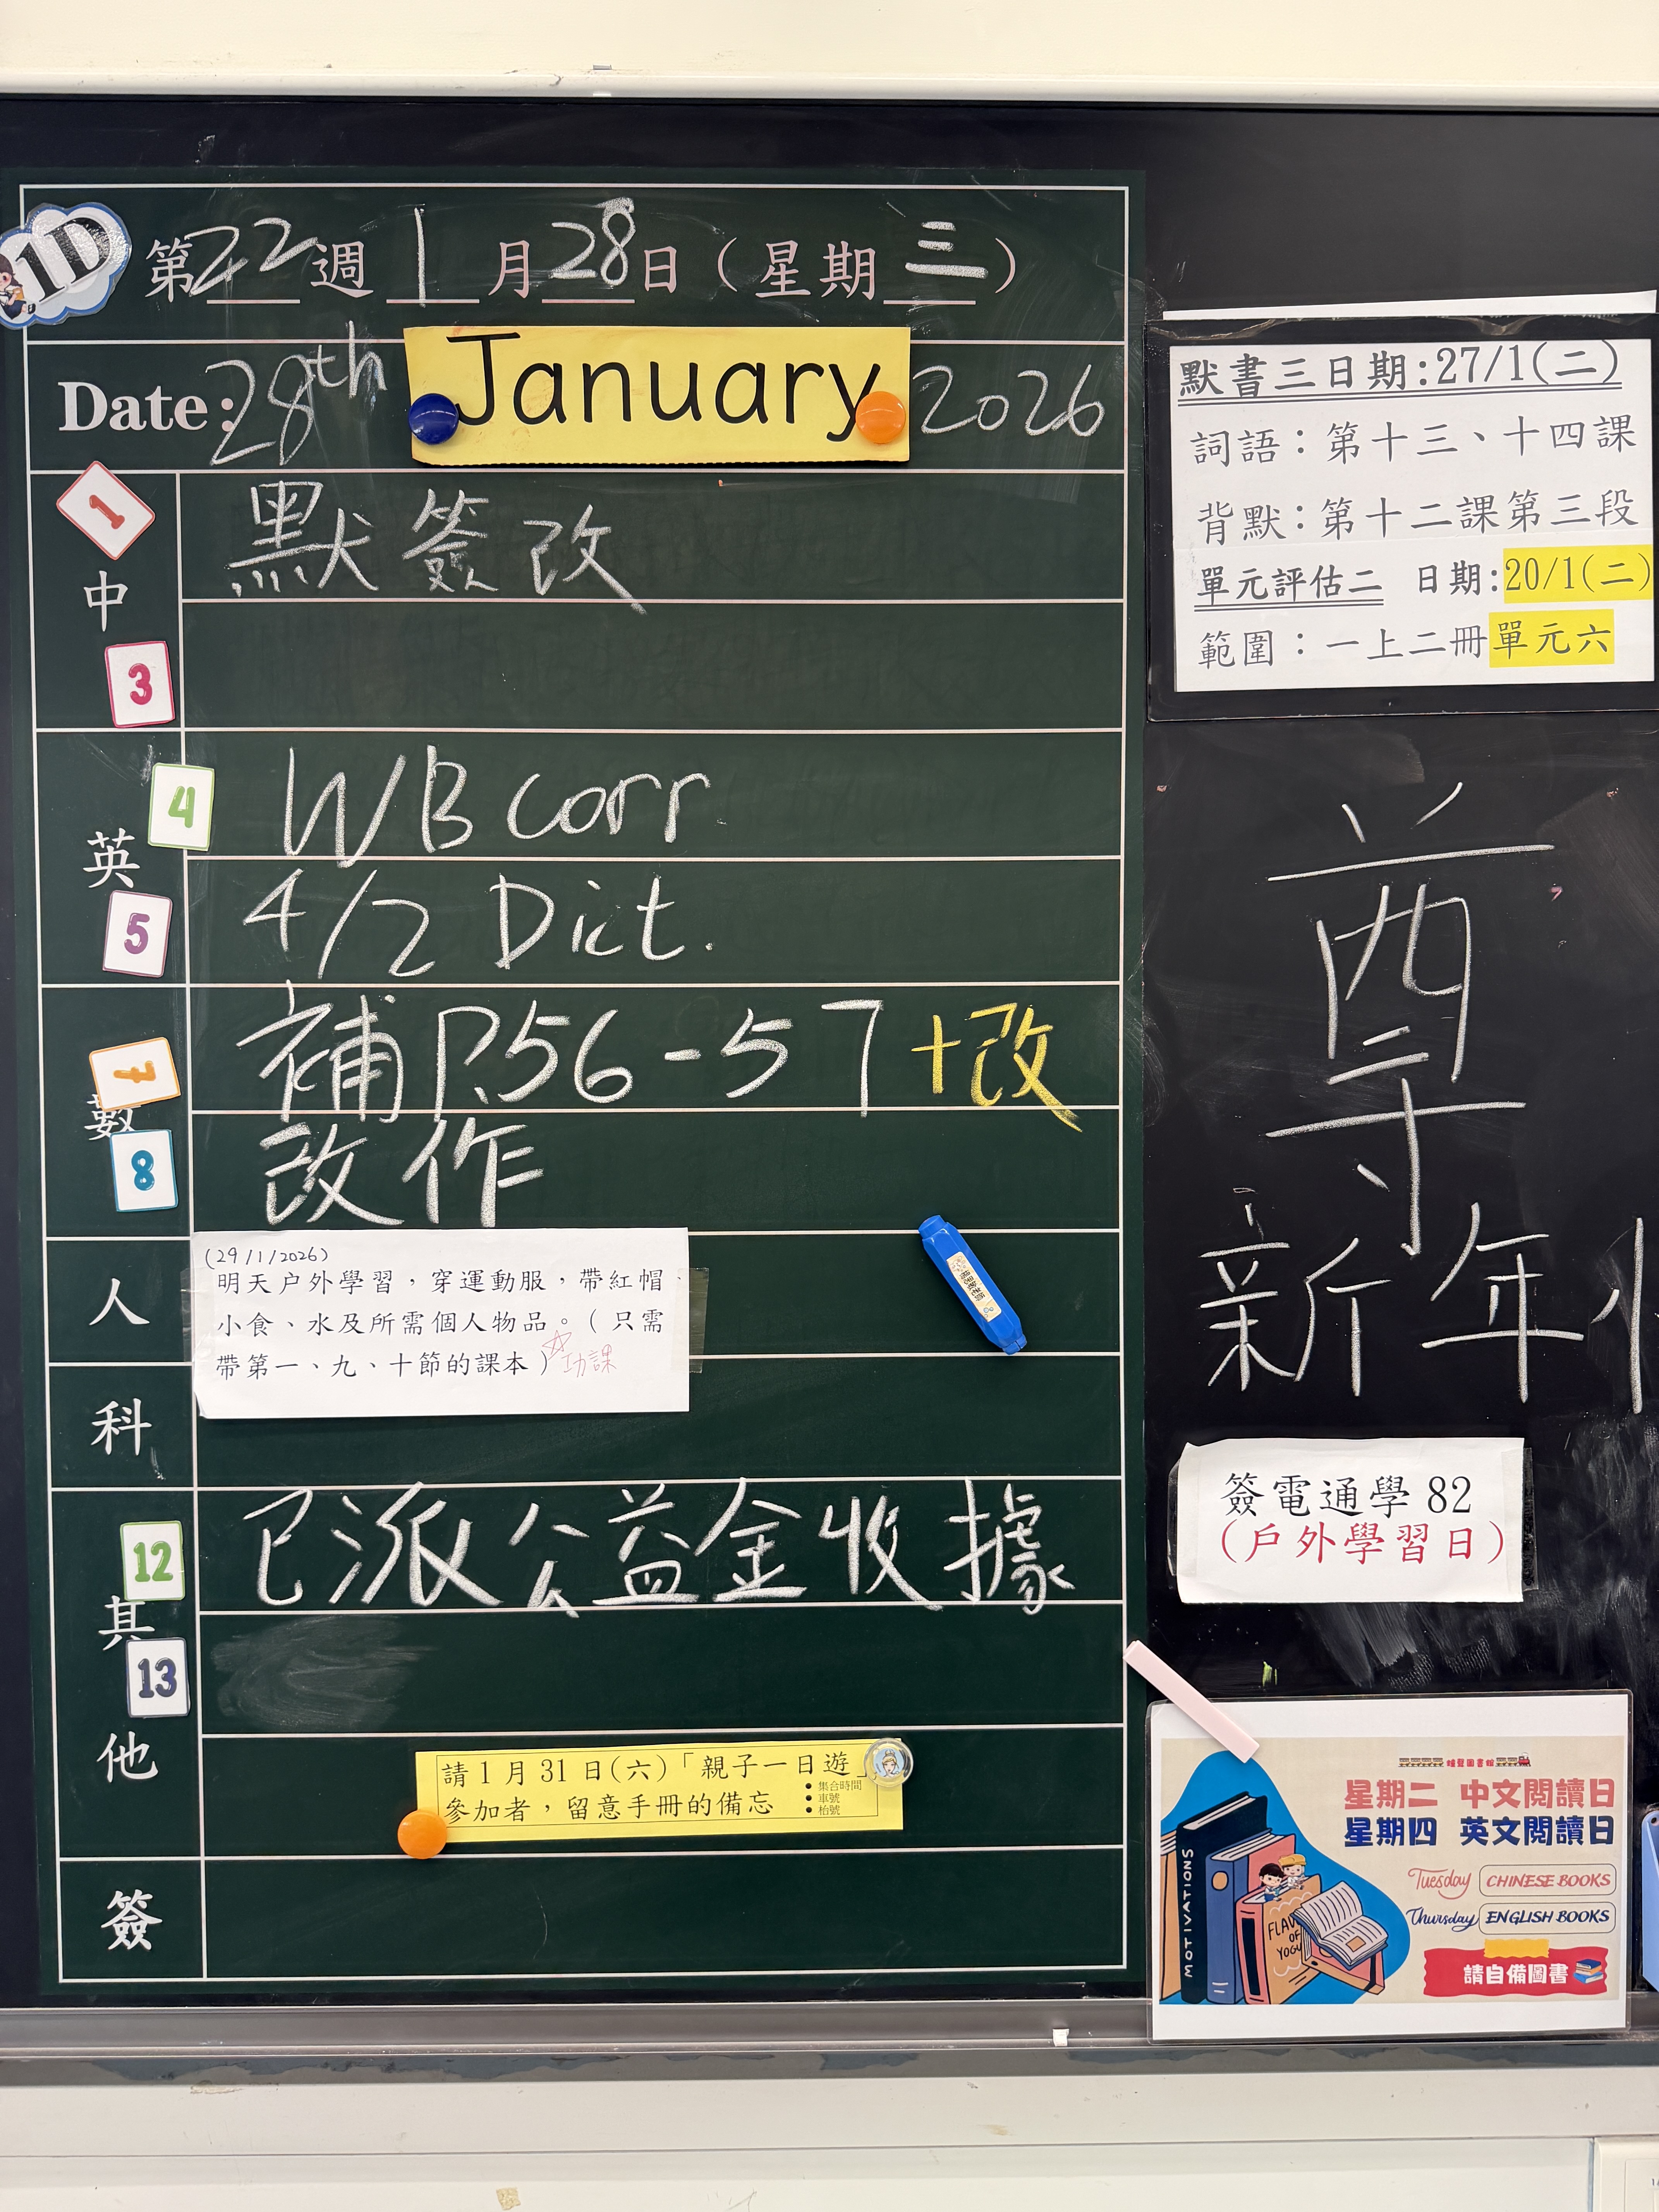 1D
第22週 1月28日（星期三）
Date: 28th January 2026
1
中
3
默簽改
4
英
5
WB corr.
4/2 Dict.
數
8
補 P.56-57 +改
改作
人
(29/1/2026)
明天戶外學習，穿運動服，帶紅帽
小食、水及所需個人物品。（只需
帶第一、九、十節的課本）☆功課
科
12
其
13
他
已派公益金收據
請1月31日(六)「親子一日遊」
參加者，留意手冊的備忘
• 集合時間
• 車號
• 枱號
簽
默書三日期:27/1(二)
詞語：第十三、十四課
背默：第十二課第三段
單元評估二 日期:20/1(二)
範圍：一上二冊單元六
尊
新年
簽電通學 82
（戶外學習日）
星期二 中文閱讀日
星期四 英文閱讀日
Tuesday CHINESE BOOKS
Thursday ENGLISH BOOKS
請自備圖書
MOTIVATIONS
OF